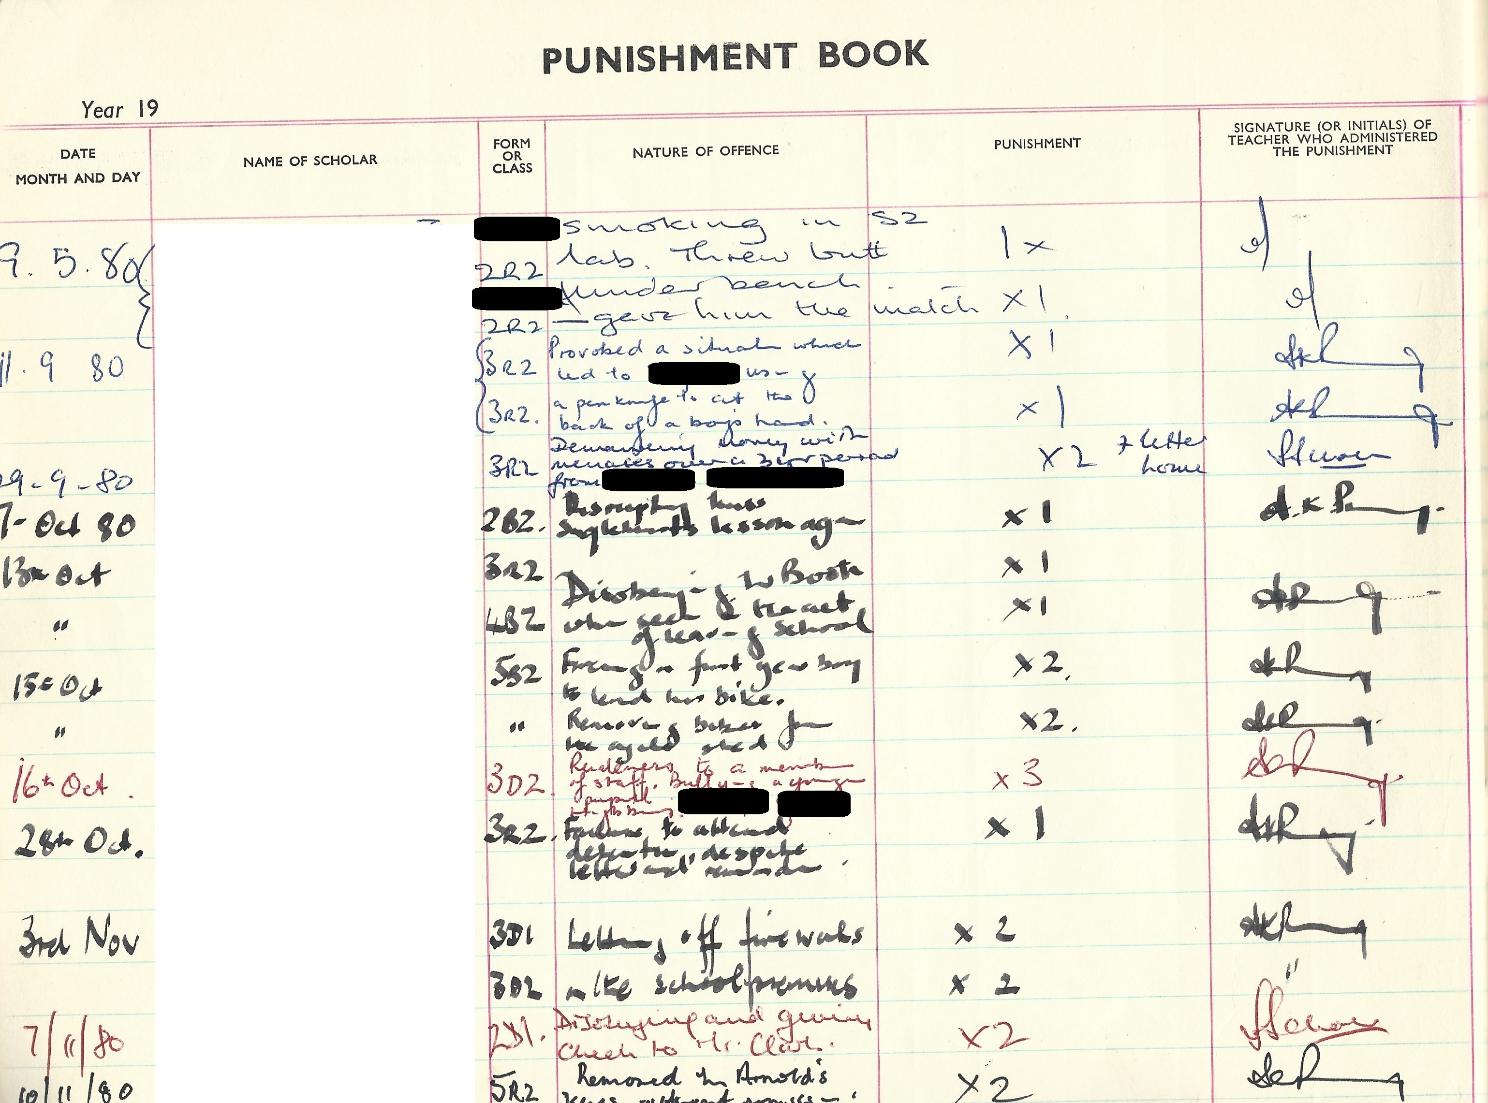 PUNISHMENT BOOK
Year 19
DATE
MONTH AND DAY
NAME OF SCHOLAR
FORM
OR
CLASS
NATURE OF OFFENCE
PUNISHMENT
SIGNATURE (OR INITIALS) OF
TEACHER WHO ADMINISTERED
THE PUNISHMENT
9.5.80
smoking in S2
lab. Threw butt
2R2
under bench
1 x
2R2
gave him the match
x 1
11.9 80
3R2
Provoked a situation which
led to
x 1
3R2.
a penknife to cut the
back of a boy's hand.
x 1
29-9-80
3R2
Demanding money with
menaces over a 3 yr period
from
x 2 + letter
home
7-Oct 80
2B2.
Disrupting Miss
lesson again
x 1
A.K P
13th Oct
3R2
x 1
"
4B2
Disobeying Mr Booth
when seen in the act
of leaving School
x 1
15th Oct
5B2
Forcing a first year boy
to lend his bike.
x 2.
"
"
Removing bikes from
the cycle shed
x 2.
16th Oct.
3D2
Rudeness to a member
of staff. Bullying a younger
pupil
x 3
28th Oct.
3R2.
Failure to attend
detention despite
letter and reminder.
x 1
3rd Nov
3D1
Letting off fireworks
x 2
3D2
in the school premises
x 2
"
7/11/80
2D1.
Disobeying and giving
Cheek to Mr. Clark.
x 2
10/11/80
5R2
Removed Mr Arnold's
x 2